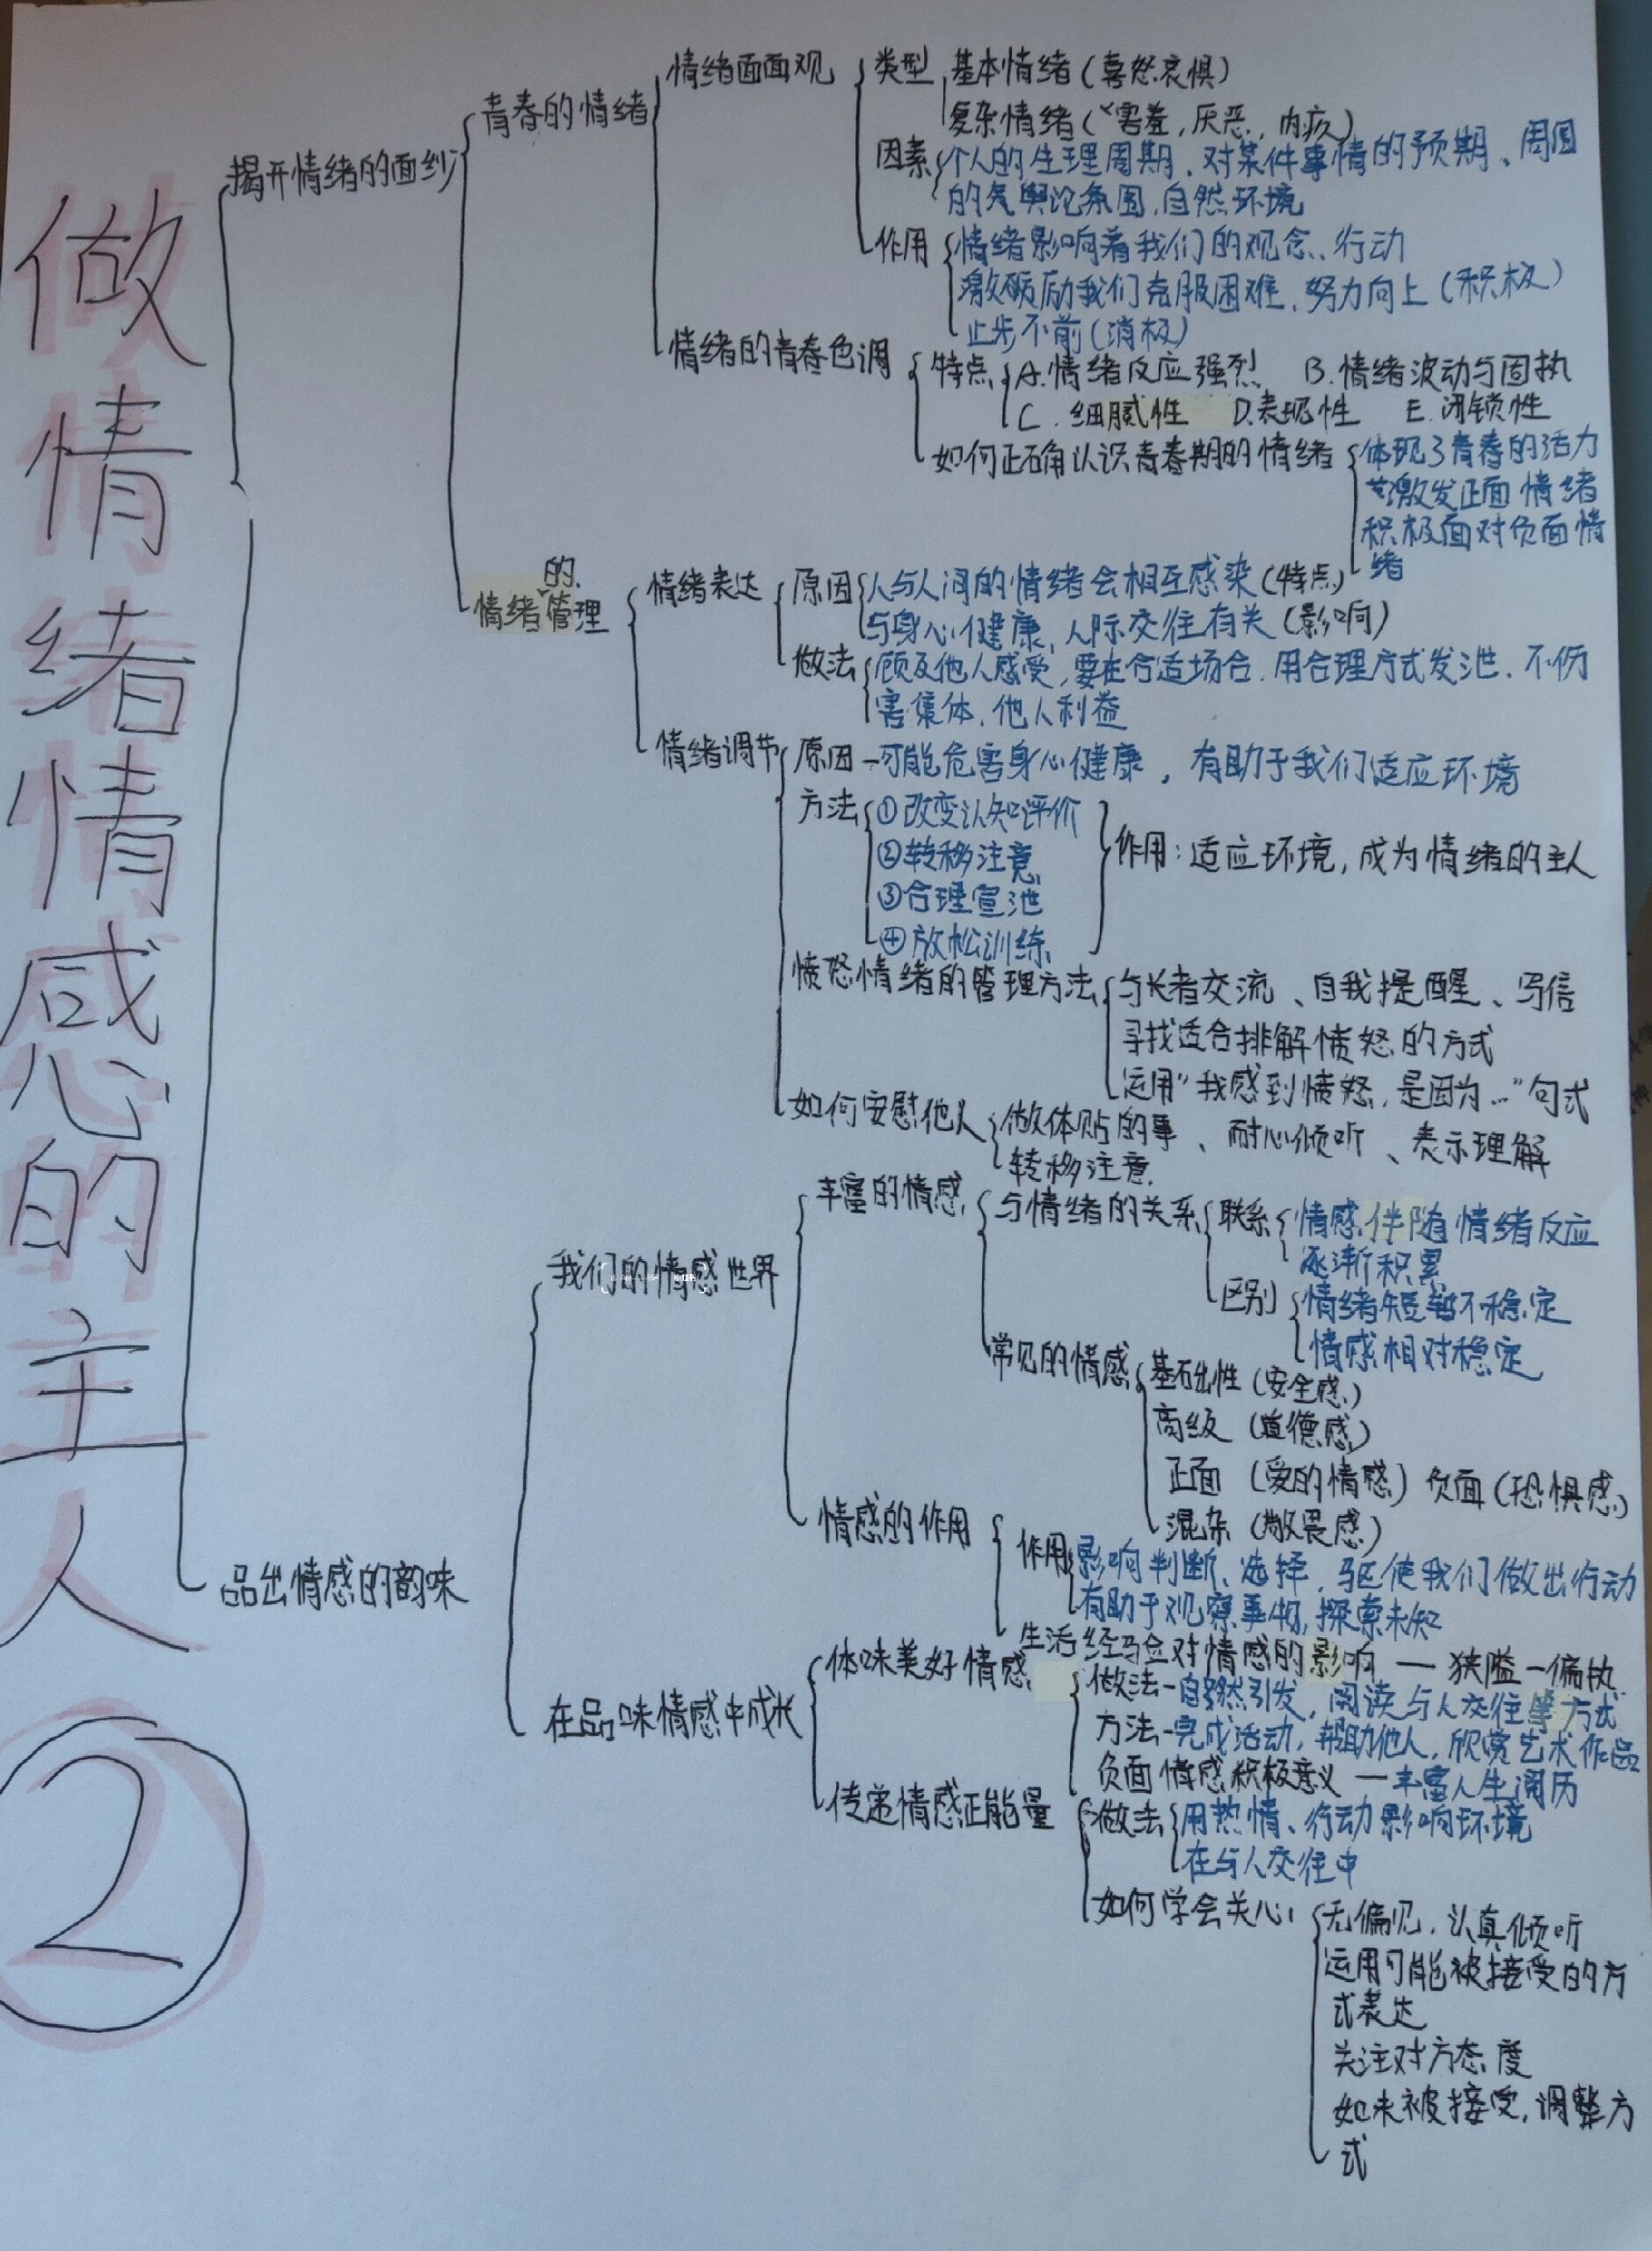 做情绪情感的主人②
揭开情绪的面纱
青春的情绪
情绪面面观
类型
基本情绪(喜怒哀惧)
复杂情绪(害羞,厌恶,内疚)
因素
个人的生理周期、对某件事情的预期、周围
的舆论氛围,自然环境
作用
情绪影响着我们的观念、行动
激励我们克服困难、努力向上(积极)
止步不前(消极)
情绪的青春色调
特点
A.情绪反应强烈 B.情绪波动与固执
C.细腻性 D.表现性 E.闭锁性
如何正确认识青春期的情绪
体现了青春的活力
激发正面情绪
积极面对负面情
绪
情绪的管理
情绪表达
原因
人与人间的情绪会相互感染(特点)
与身心健康,人际交往有关(影响)
做法
顾及他人感受,要在合适场合.用合理方式发泄.不伤
害集体.他人利益
情绪调节
原因—可能危害身心健康,有助于我们适应环境
方法
①改变认知评价
②转移注意
③合理宣泄
④放松训练
作用:适应环境,成为情绪的主人
愤怒情绪的管理方法
与长者交流、自我提醒、写信
寻找适合排解愤怒的方式
运用"我感到愤怒,是因为…"句式
如何安慰他人
做体贴的事、耐心倾听、表示理解
转移注意
品出情感的韵味
我们的情感世界
丰富的情感
与情绪的关系
联系
情感伴随情绪反应
逐渐积累
区别
情绪短暂不稳定
情感相对稳定
常见的情感
基础性(安全感)
高级(道德感)
正面(爱的情感)负面(恐惧感)
混杂(敬畏感)
情感的作用
作用
影响判断、选择,驱使我们做出行动
有助于观察事物,探索未知
生活经验对情感的影响—狭隘—偏执
在品味情感中成长
体味美好情感
做法—自然引发,阅读与人交往等方式
方法—完成活动,帮助他人,欣赏艺术作品
负面情感积极意义—丰富人生阅历
传递情感正能量
做法
用热情、行动影响环境
在与人交往中
如何学会关心
无偏见,认真倾听
运用可能被接受的方
式表达
关注对方态度
如未被接受,调整方
式